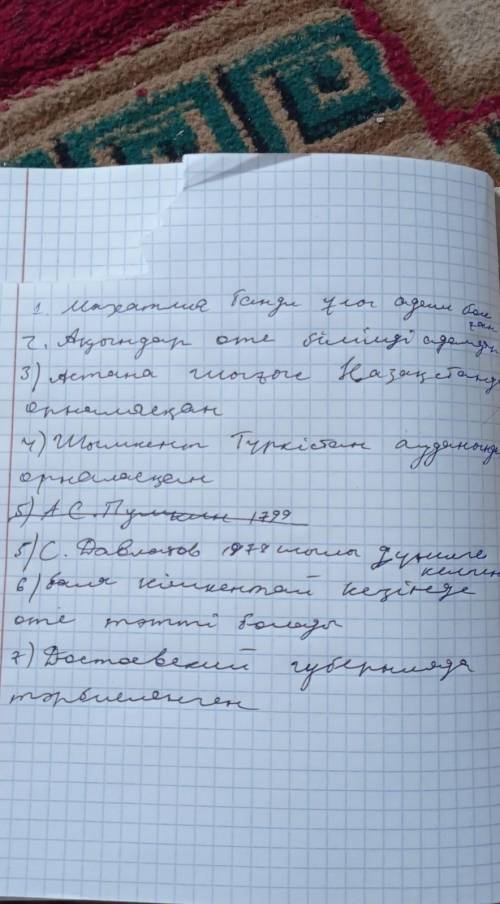 1. Махатма Ганди ұлы адам бол
ған
2. Ақындар өте білімді адамдар
3) Астана шығыс Қазақстанда
орналасқан
4) Шымкент Түркістан ауданында
орналасқан
5) А.С. Пушкин 1799
5) С. Давлатов 1978 жылы дүниеге
келген
6) бала кішкентай кезінде
өте тәтті болады
7) Достоевский губернияда
тәрбиеленген